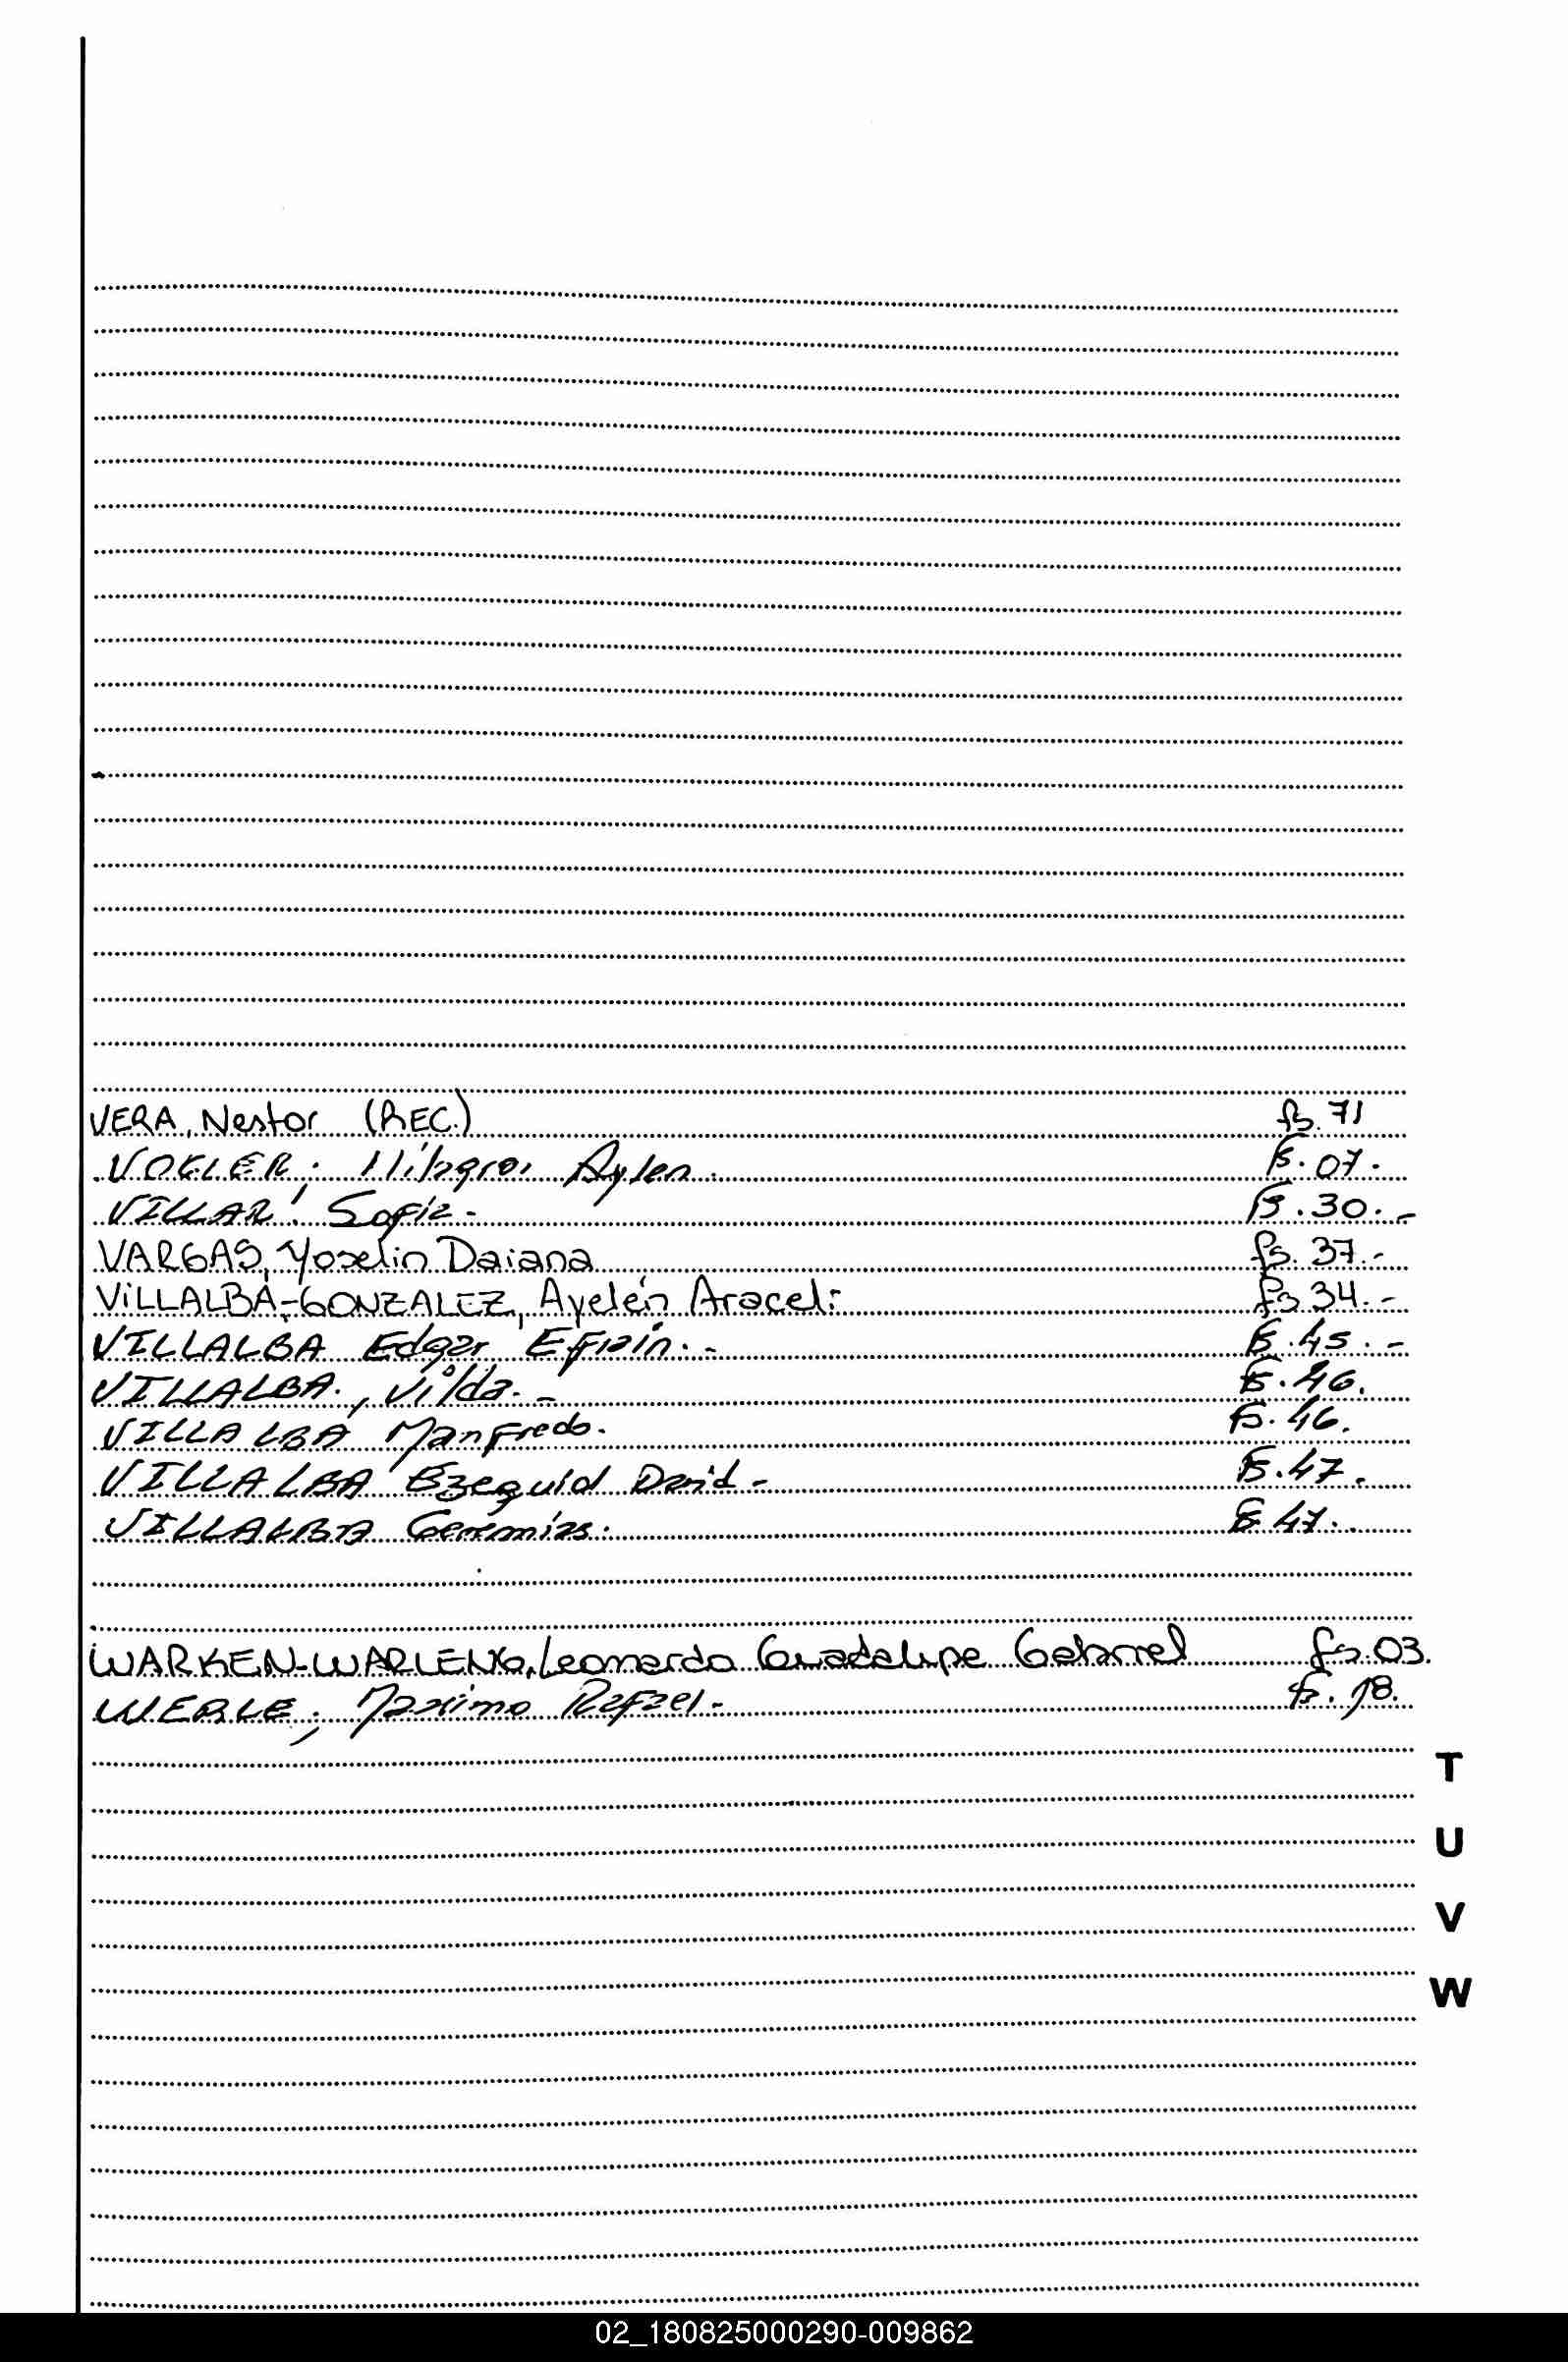 VERA, Nestor (REC.) fs. 71
VOGLER; Milagros Aylen. fs. 07.
VILLAR, Sofia.- fs. 30.-
VARGAS, Yoselin Daiana fs. 37.-
VILLALBA-GONZALEZ, Ayelén Araceli fs 34.-
VILLALBA Edgar Efrain.- fs. 45.-
VILLALBA, Vilda.- fs. 46.
VILLALBA Manfredo. fs. 46.
VILLALBA Ezequiel David- fs. 47.
VILLALBA Geremias. fs 47.
WARKEN-WARLENG, Leonardo Guadalupe Gabriel fs. 03.
WERLE; Maximo Rafael.- fs. 18.
T
U
V
W
02_180825000290-009862